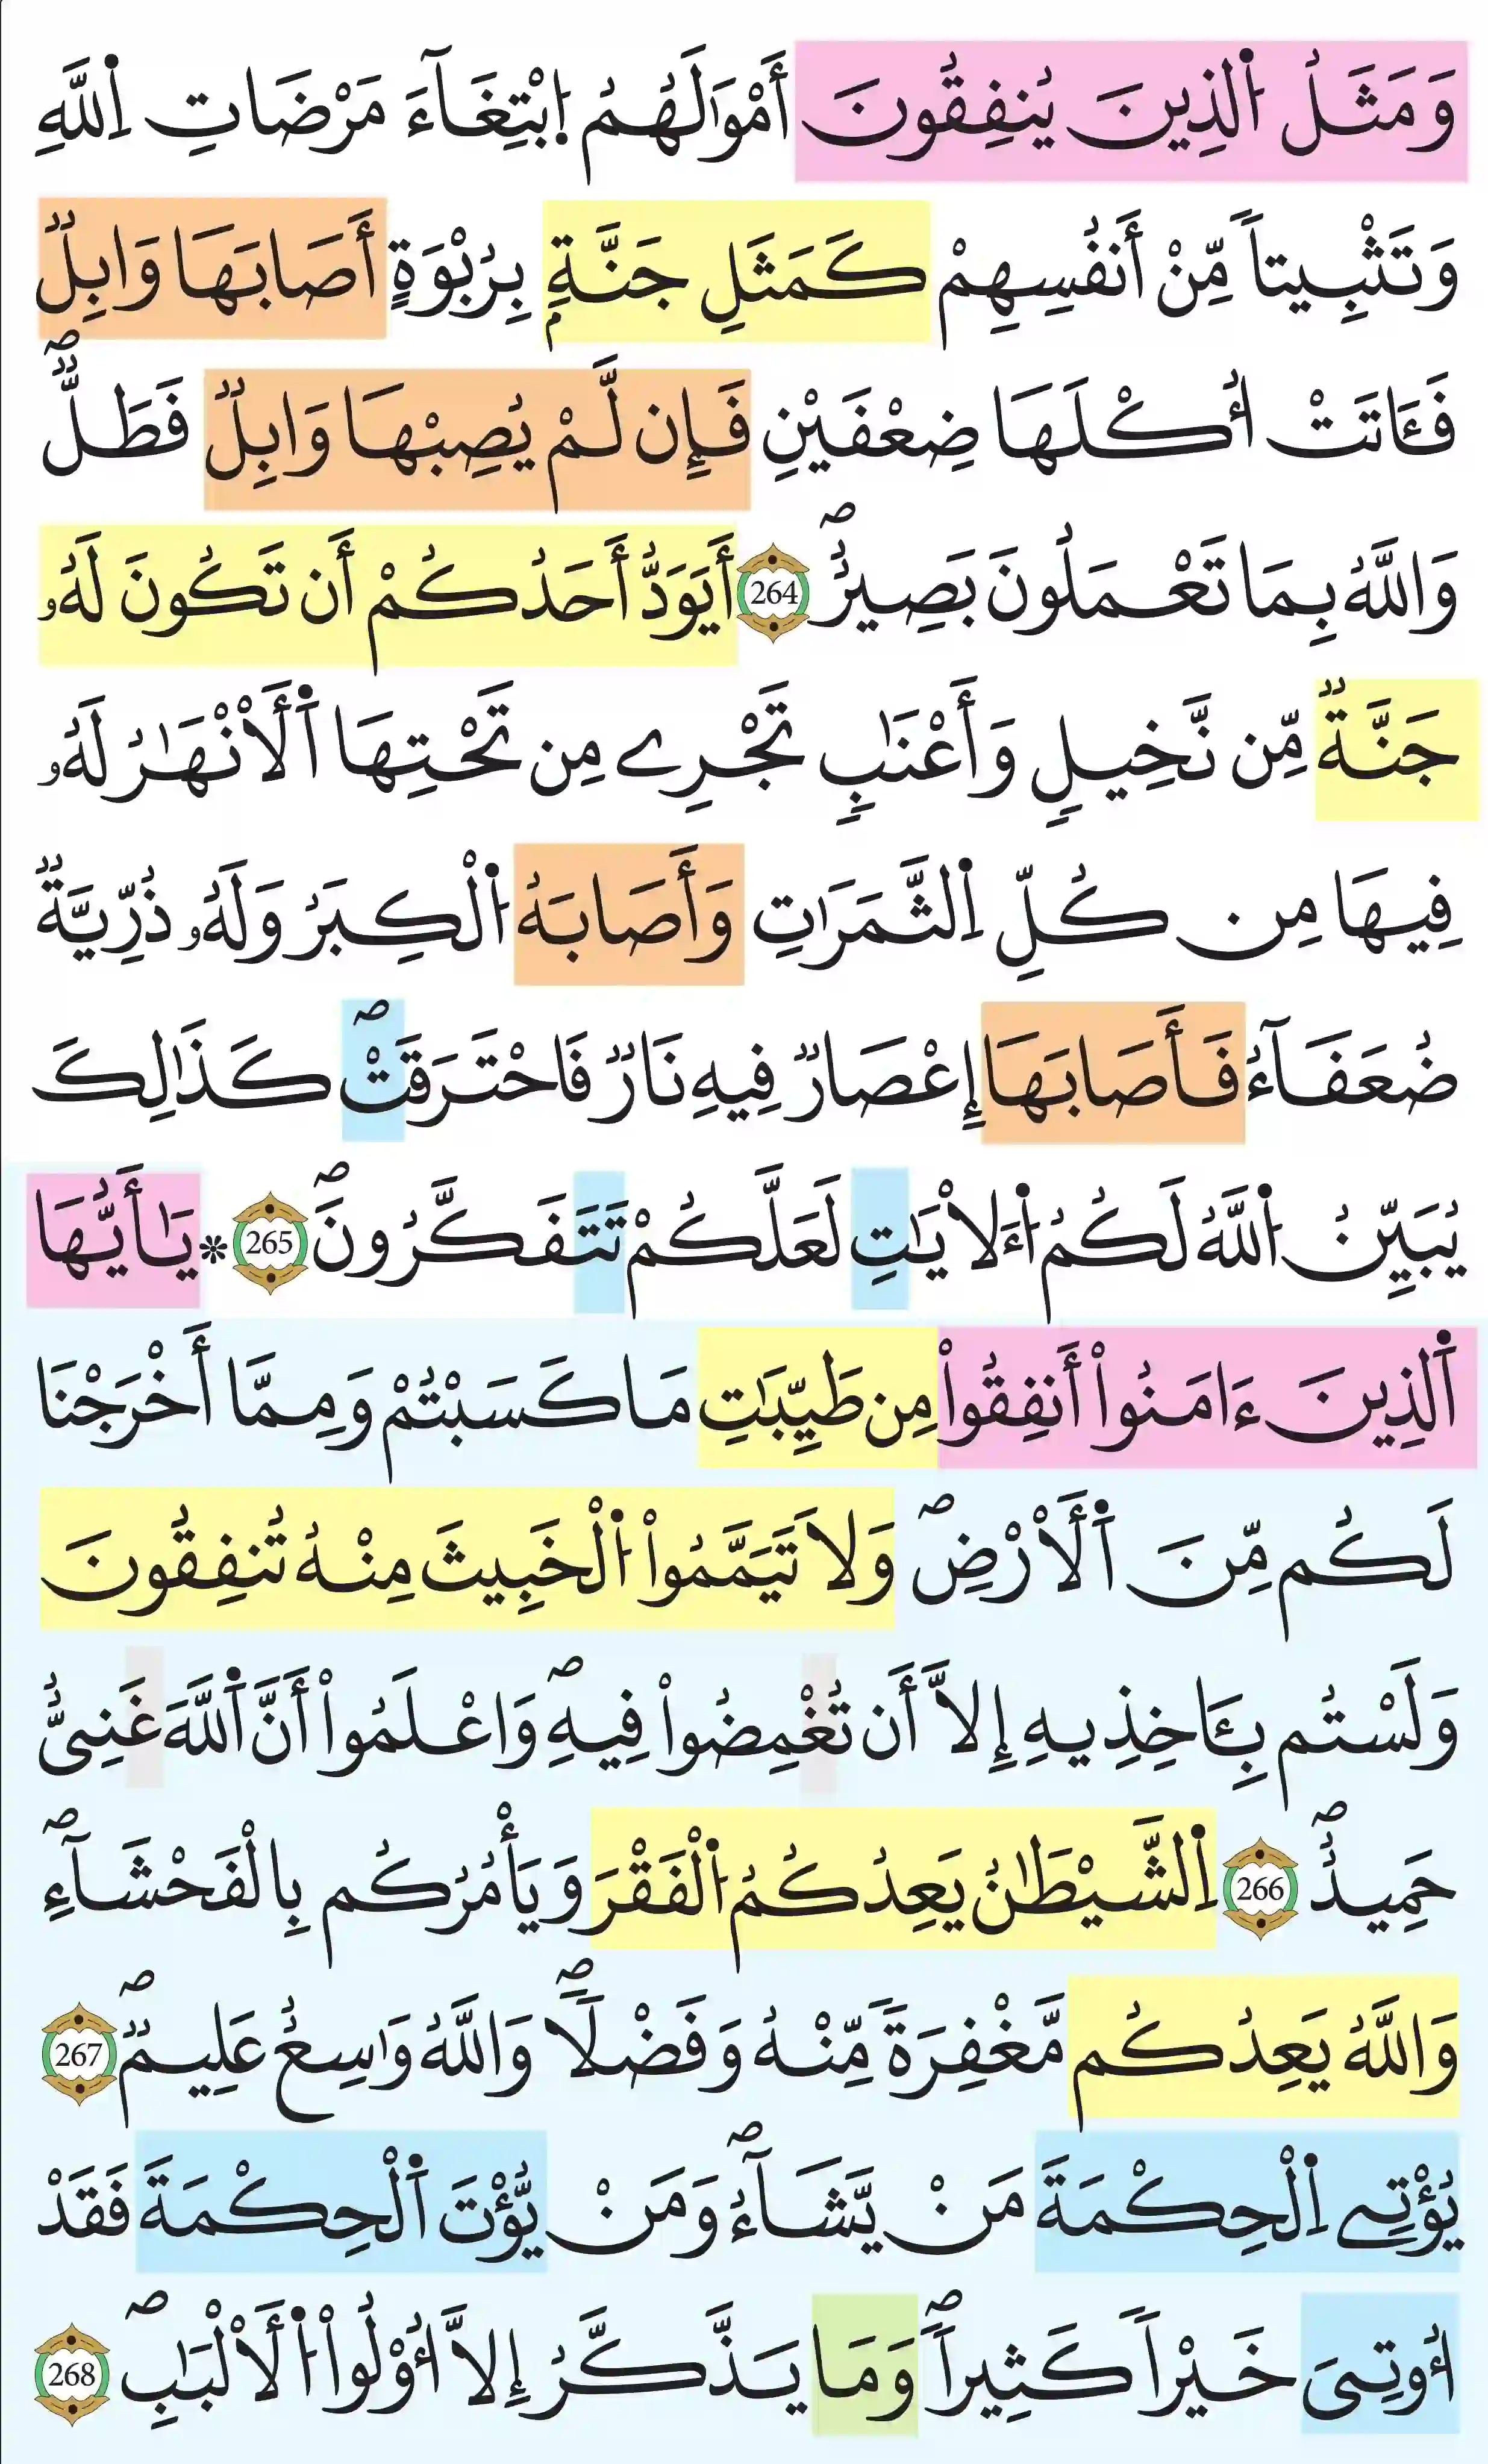 وَمَثَلُ اُ۬لذِينَ يُنفِقُونَ أَمْوَٰلَهُمُ اُ۪بْتِغَآءَ مَرْضَاتِ اِ۬للَّهِ
وَتَثْبِيتاٗ مِّنْ أَنفُسِهِمْ كَمَثَلِ جَنَّةِۢ بِرُبْوَةٍ أَصَابَهَا وَابِلٞ
فَـَٔاتَتُ اُكْلَهَا ضِعْفَيْنِ فَإِن لَّمْ يُصِبْهَا وَابِلٞ فَطَلّٞۖ
وَاللَّهُ بِمَا تَعْمَلُونَ بَصِيرٌۖ 264 أَيَوَدُّ أَحَدُكُمْ أَن تَكُونَ لَهُۥ
جَنَّةٞ مِّن نَّخِيلٖ وَأَعْنَٰبٖ تَجْرِے مِن تَحْتِهَا اَ۬لَانْهَٰرُ لَهُۥ
فِيهَا مِن كُلِّ اِ۬لثَّمَرَٰتِ وَأَصَابَهُ اُ۬لْكِبَرُ وَلَهُۥ ذُرِّيَّةٞ
ضُعَفَآءُ فَأَصَابَهَا إِعْصَارٞ فِيهِ نَارٞ فَاحْتَرَقَتْۖ كَذَٰلِكَ
يُبَيِّنُ اُ۬للَّهُ لَكُمُ اُ۬لَايَٰتِ لَعَلَّكُمْ تَتَفَكَّرُونَۖ 265 * يَٰأَيُّهَا
اَ۬لذِينَ ءَامَنُواْ أَنفِقُواْ مِن طَيِّبَٰتِ مَا كَسَبْتُمْ وَمِمَّا أَخْرَجْنَا
لَكُم مِّنَ اَ۬لَارْضِۖ وَلَا تَيَمَّمُواْ اُ۬لْخَبِيثَ مِنْهُ تُنفِقُونَ
وَلَسْتُم بِـَٔاخِذِيهِ إِلَّا أَن تُغْمِضُواْ فِيهِۖ وَاعْلَمُواْ أَنَّ اَ۬للَّهَ غَنِيٌّ
حَمِيدٌۖ 266 اِ۬لشَّيْطَٰنُ يَعِدُكُمُ اُ۬لْفَقْرَ وَيَأْمُرُكُم بِالْفَحْشَآءِۖ
وَاللَّهُ يَعِدُكُم مَّغْفِرَةٗ مِّنْهُ وَفَضْلاٗۖ وَاللَّهُ وَٰسِعٌ عَلِيمٞۖ 267
يُؤْتِے اِ۬لْحِكْمَةَ مَنْ يَّشَآءُۖ وَمَنْ يُّؤْتَ اَ۬لْحِكْمَةَ فَقَدْ
أُوتِيَ خَيْراٗ كَثِيراٗۖ وَمَا يَذَّكَّرُ إِلَّا أُوْلُواْ اُ۬لَالْبَٰبِۖ 268